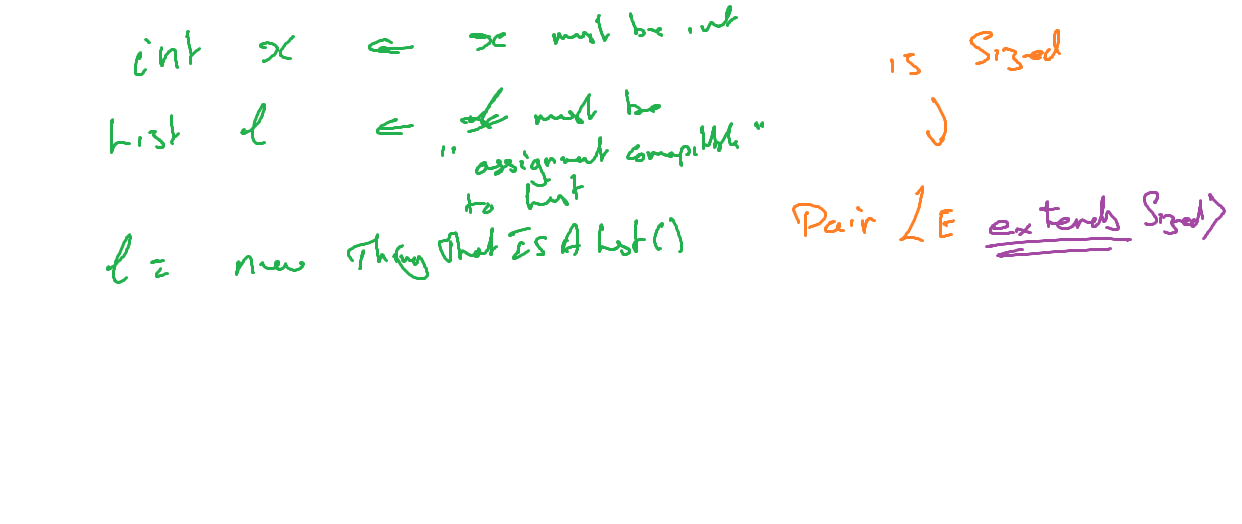 int x ⇐ x must be int
List l ⇐ l must be
"assignment comapitble"
to List
l = new ThingThatISAList()
is Sized
Pair <E extends Sized>